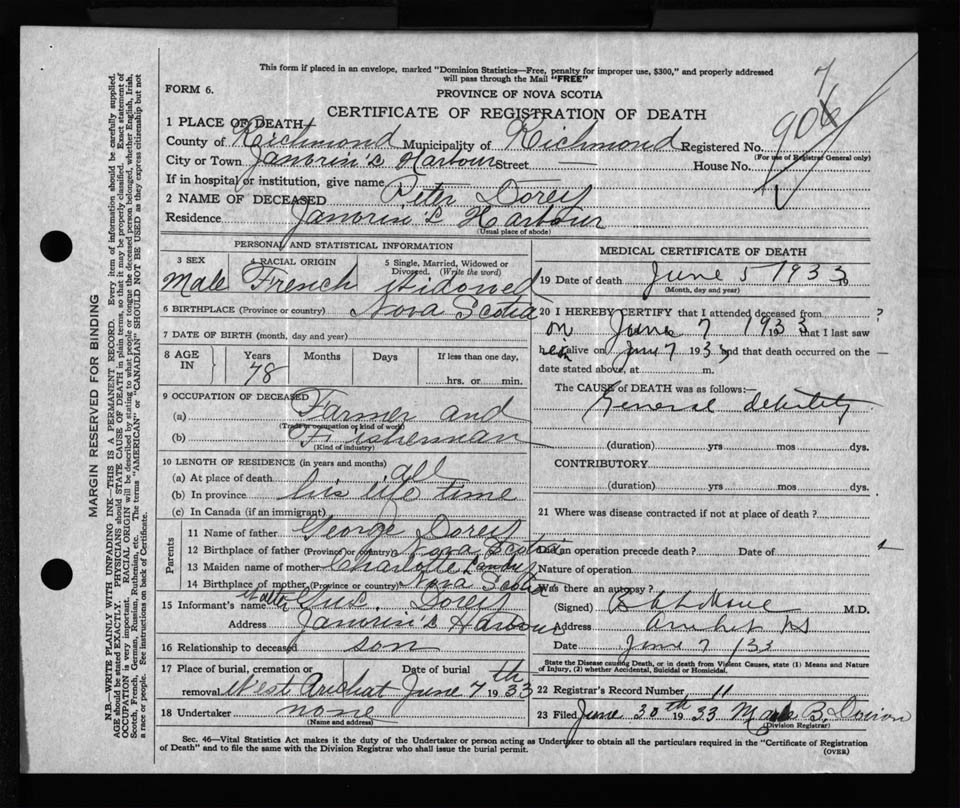 This form if placed in an envelope, marked "Dominion Statistics—Free, penalty for improper use, $300," and properly addressed
will pass through the Mail "FREE"
FORM 6.
PROVINCE OF NOVA SCOTIA
CERTIFICATE OF REGISTRATION OF DEATH
7
906
1 PLACE OF DEATH
County of Richmond Municipality of Richmond Registered No.
(For use of Registrar General only)
City or Town Janvrin's Harbour Street House No.
If in hospital or institution, give name
2 NAME OF DECEASED Peter Dorey
Residence Janvrin's Harbour
(Usual place of abode)
PERSONAL AND STATISTICAL INFORMATION
3 SEX 4 RACIAL ORIGIN 5 Single, Married, Widowed or Divorced. (Write the word)
Male French Widowed
6 BIRTHPLACE (Province or country) Nova Scotia
7 DATE OF BIRTH (month, day and year)
8 AGE IN Years Months Days If less than one day,
78 hrs. or min.
9 OCCUPATION OF DECEASED
(a) Farmer and
(Trade or occupation or kind of work)
(b) Fisherman
(Kind of industry)
10 LENGTH OF RESIDENCE (in years and months)
(a) At place of death all
(b) In province his life time
(c) In Canada (if an immigrant)
Parents
11 Name of father George Dorey
12 Birthplace of father (Province or country) Nova Scotia
13 Maiden name of mother Charlotte Landry
14 Birthplace of mother (Province or country) Nova Scotia
15 Informant's name Walter Gus. Dorey
Address Janvrin's Harbour
16 Relationship to deceased son
17 Place of burial, cremation or removal Date of burial
West Arichat June 7th 1933
18 Undertaker none
(Name and address)
MEDICAL CERTIFICATE OF DEATH
19 Date of death June 5 1933 19
(Month, day and year)
20 I HEREBY CERTIFY that I attended deceased from ?
on June 7 1933 19 that I last saw
him alive on June 7 1933 and that death occurred on the
date stated above, at m.
The CAUSE of DEATH was as follows:—
General debility
(duration) yrs mos dys.
CONTRIBUTORY
(duration) yrs mos dys.
21 Where was disease contracted if not at place of death?
Did an operation precede death? Date of
Nature of operation
Was there an autopsy?
(Signed) M.D.
Address Arichat NS
Date June 7 / 33
State the Disease causing Death, or in death from Violent Causes, state (1) Means and Nature
of Injury, (2) whether Accidental, Suicidal or Homicidal.
22 Registrar's Record Number 11
23 Filed June 30th 1933 B.
(Division Registrar)
Sec. 46—Vital Statistics Act makes it the duty of the Undertaker or person acting as Undertaker to obtain all the particulars required in the "Certificate of Registration
of Death" and to file the same with the Division Registrar who shall issue the burial permit.
(OVER)
MARGIN RESERVED FOR BINDING
N.B.—WRITE PLAINLY WITH UNFADING INK—THIS IS A PERMANENT RECORD. Every item of information should be carefully supplied.
AGE should be stated EXACTLY. PHYSICIANS should STATE CAUSE OF DEATH in plain terms, so that it may be properly classified. Exact statement of
OCCUPATION is very important. RACIAL ORIGIN will be described by stating to what people or tongue the deceased person belonged, whether English, Irish,
Scotch, French, German, Russian, Ruthenian, etc. The terms "AMERICAN" or "CANADIAN" SHOULD NOT BE USED as they express citizenship but not
a race or people. See instructions on back of Certificate.